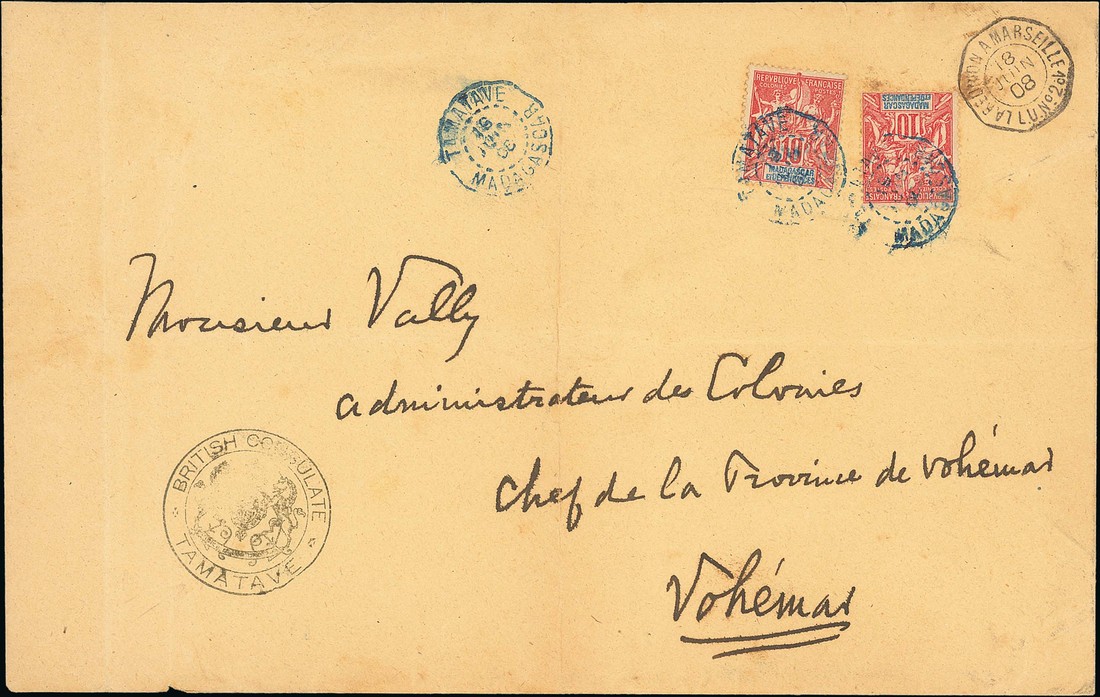 TAMATAVE
16
JUIN
08
MADAGASCAR
REPUBLIQUE FRANÇAISE
COLONIES POSTES
10
MADAGASCAR
ET DÉPENDANCES
TAMATAVE
MADAGASCAR
MADAGASCAR
ET DÉPENDANCES
10
COLONIES POSTES
REPUBLIQUE FRANÇAISE
MADAGASCAR
LA REUNION A MARSEILLE
18
JUIN
08
L.V. No 2
Monsieur Vally
administrateur des Colonies
chef de la Province de Vohémar
Vohémar
BRITISH CONSULATE
TAMATAVE